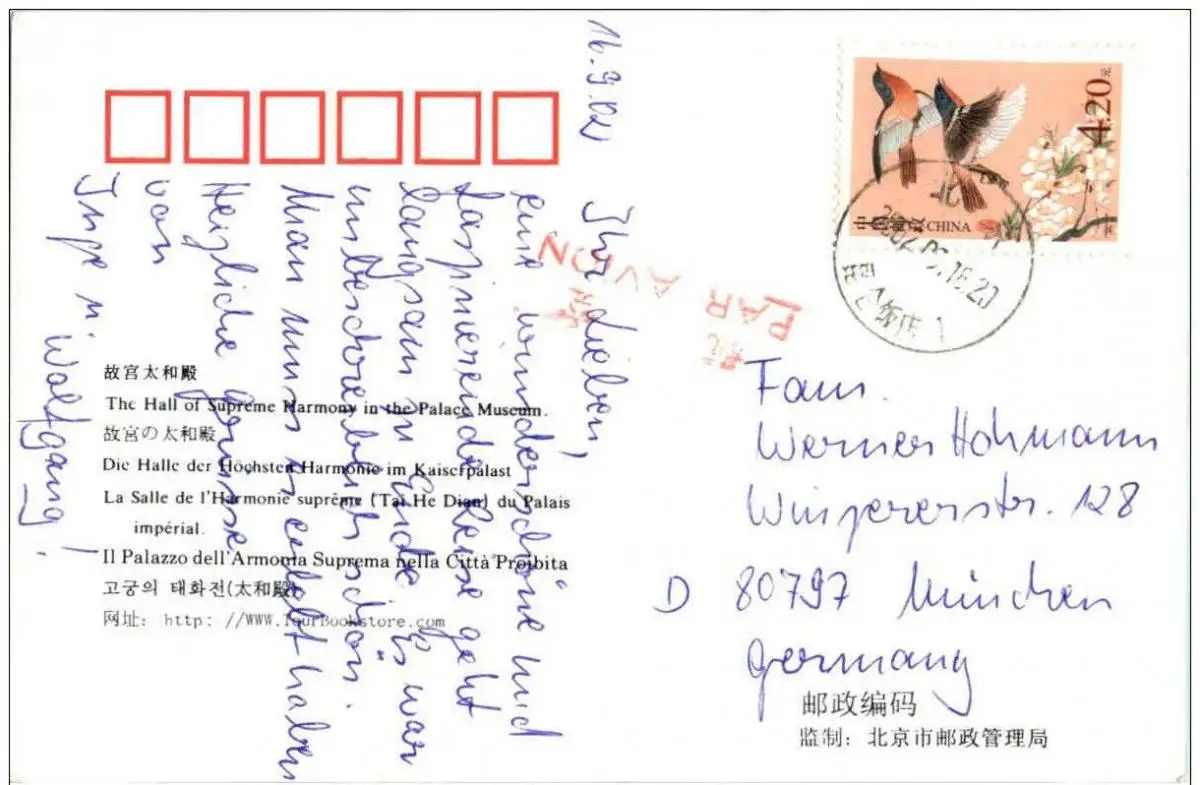 16.9.02
Ihr Lieben,
eine wunderschöne und
faszinierende Reise geht
langsam zu Ende. Es war
unbeschreiblich schön.
Man muss es erlebt haben
Herzliche Grüsse
von
Inge u. Wolfgang!
故宫太和殿
The Hall of Supreme Harmony in the Palace Museum.
故宮の太和殿
Die Halle der Höchsten Harmonie im Kaiserpalast
La Salle de l'Harmonie suprême (Tai He Dian) du Palais
impérial.
Il Palazzo dell'Armonia Suprema nella Città Proibita
고궁의 태화전(太和殿)
网址: http://WWW.TourBookstore.com
4.20元
中国邮政 CHINA
PAR AVION
Fam.
Werner Hohmann
Winzererstr. 128
D 80797 München
Germany
邮政编码
监制: 北京市邮政管理局